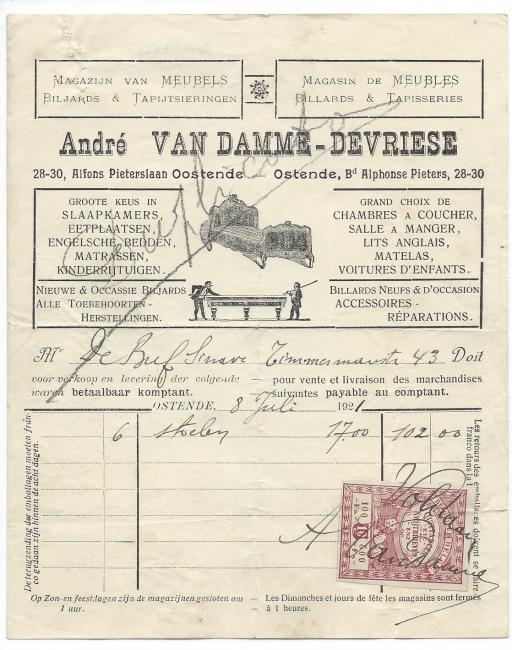 Magazijn van MEUBELS
Biljards & Tapijtsieringen
Magasin de MEUBLES
Billards & Tapisseries
André VAN DAMME-DEVRIESE
28-30, Alfons Pieterslaan Oostende
Ostende, Bd Alphonse Pieters, 28-30
GROOTE KEUS IN
SLAAPKAMERS,
EETPLAATSEN,
ENGELSCHE BEDDEN,
MATRASSEN,
KINDERRIJTUIGEN.
GRAND CHOIX DE
CHAMBRES A COUCHER,
SALLE A MANGER,
LITS ANGLAIS,
MATELAS,
VOITURES D'ENFANTS.
Nieuwe & Occassie Biljards
Alle Toebehoorten-
Herstellingen.
Billards Neufs & d'Occasion
Accessoires-
Réparations.
Mr De Timmermanstr 43 Doit
voor verkoop en levering der volgende — pour vente et livraison des marchandises
waren betaalbaar komptant. suivantes payable au comptant.
OSTENDE, 8 Juli 1921
6 stoelen 17.00 102 00
De terugzending der emballagien moeten fran-
co gedaan zijn binnen de acht dagen.
Les retours des emballages doivent se faire
franco dans la
100
Voldaan
A
Op Zon- en feestdagen zijn de magazijnen gesloten om
1 uur.
— Les Dimanches et jours de fête les magasins sont fermés
à 1 heures.